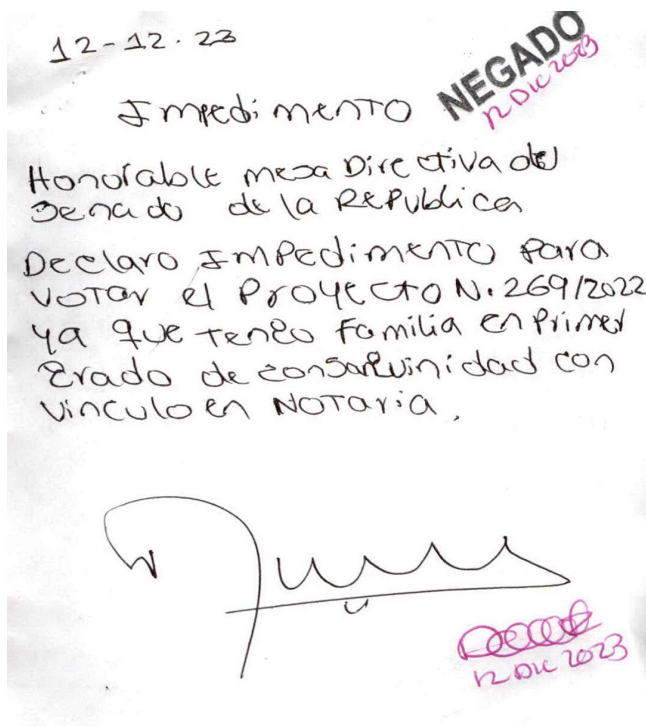 12-12-23
NEGADO
12 DIC 2023
Impedimento
Honorable mesa Directiva del
Senado de la Republica
Declaro Impedimento para
votar el Proyecto N. 269/2022
ya que tengo Familia en Primer
grado de consanguinidad con
vinculo en NOTaria.
12 DIC 2023